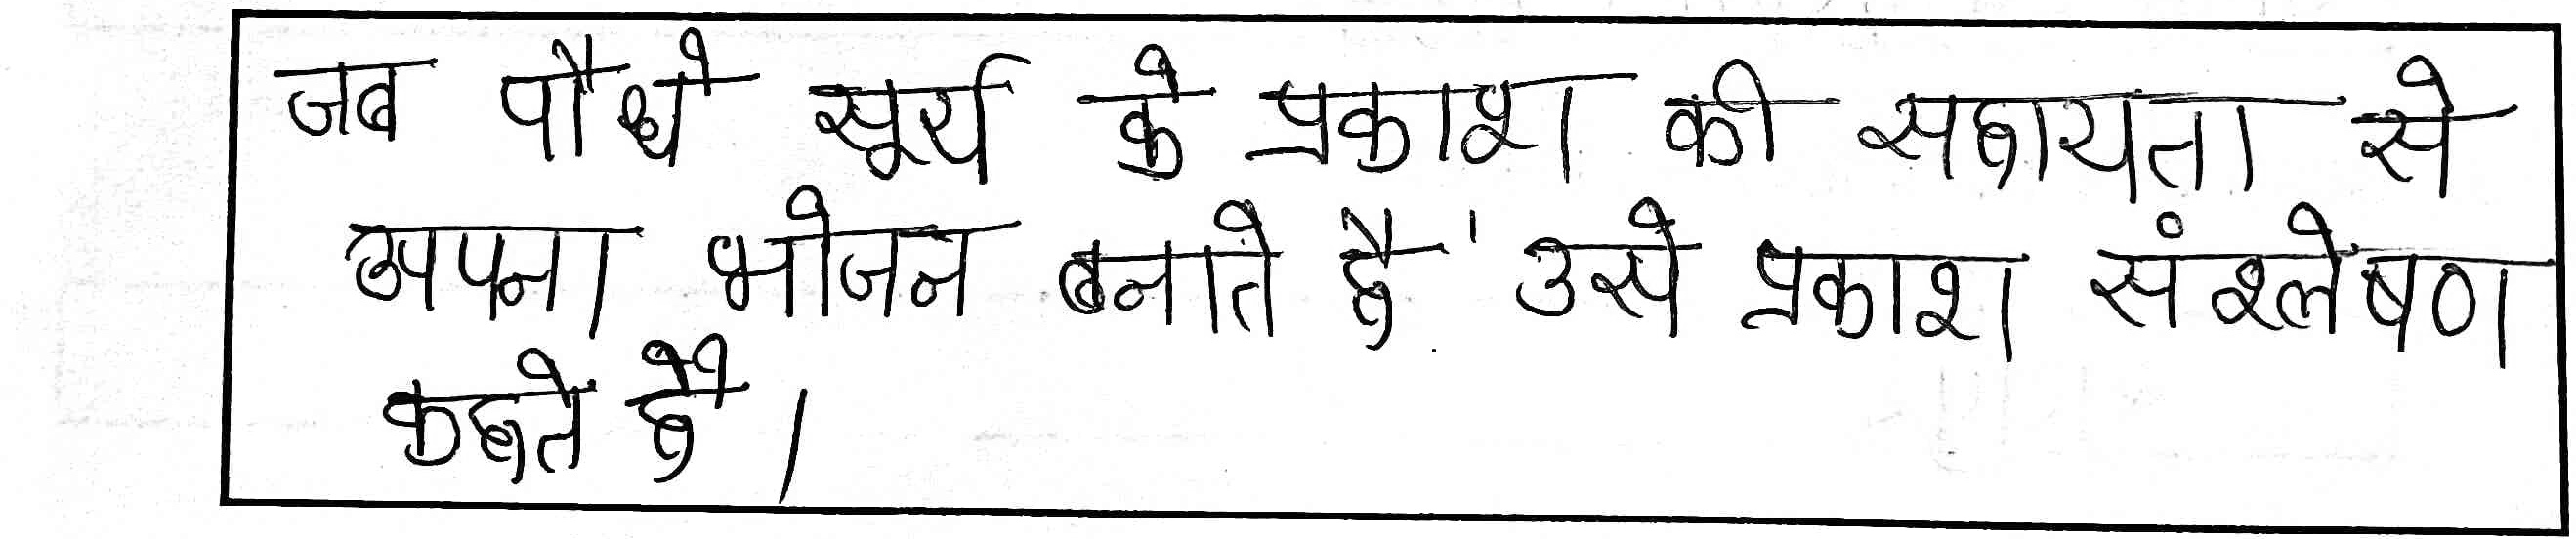 जब पौधे सूर्य के प्रकाश की सहायता से
अपना भोजन बनाते है उसे प्रकाश संश्लेषण
कहते है।